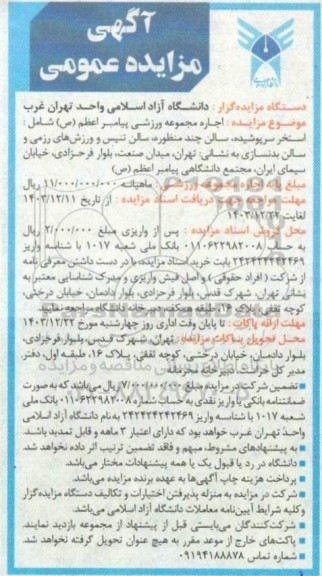 آگهی
مزایده عمومی
دستگاه مزایده‌گزار : دانشگاه آزاد اسلامی واحد تهران غرب
موضوع مزایده : اجاره مجموعه ورزشی پیامبر اعظم (ص) شامل :
استخر سرپوشیده، سالن چند منظوره، سالن تنیس و ورزش‌های رزمی و
سالن بدنسازی به نشانی: تهران، میدان صنعت، بلوار فرحزادی، خیابان
سیمای ایران، مجتمع دانشگاهی پیامبر اعظم (ص)
مبلغ پایه اجاره مجموعه ورزشی : ماهیانه ۱۱/۰۰۰/۰۰۰/۰۰۰ ریال
مهلت دریافت اسناد مزایده : از تاریخ ۱۴۰۳/۱۲/۱۱
لغایت ۱۴۰۳/۱۲/۲۲
محل فروش اسناد مزایده : پس از واریزی مبلغ ۲/۰۰۰/۰۰۰ ریال
به حساب ۰۱۱۰۶۲۲۹۸۲۰۰۸ بانک ملی شعبه ۱۰۱۷ با شناسه واریز
۲۴۲۴۲۴۲۴۲۴۶۹ بابت خرید اسناد مزایده، با در دست داشتن معرفی نامه
از شرکت (افراد حقوقی) و اصل فیش واریزی و مدرک شناسایی معتبر به
نشانی تهران، شهرک قدس، بلوار فرحزادی، بلوار دادمان، خیابان درختی،
کوچه ثقفی، پلاک ۱۶، طبقه همکف، دبیرخانه دانشگاه مراجعه نمایند.
مهلت ارائه پاکات : تا پایان وقت اداری روز چهارشنبه مورخ ۱۴۰۳/۱۲/۲۲
محل تحویل پاکات مزایده: تهران، شهرک قدس، بلوار فرحزادی،
بلوار دادمان، خیابان درختی، کوچه ثقفی، پلاک ۱۶، طبقه اول، دفتر
مدیر کل حراست، دبیرخانه محرمانه
تضمین شرکت در مزایده مبلغ ریال می‌باشد که به صورت
ضمانتنامه بانکی یا واریز نقدی به حساب شماره ۰۱۱۰۶۲۲۹۸۲۰۰۸ بانک ملی
شعبه ۱۰۱۷ با شناسه واریز ۲۴۲۴۲۴۲۴۲۴۶۹ به نام دانشگاه آزاد اسلامی
واحد تهران غرب خواهد بود که دارای اعتبار ۳ ماهه و قابل تمدید باشد.
به پیشنهادهای مشروط، مبهم و فاقد تضمین ترتیب اثر داده نخواهد شد.
دانشگاه در رد یا قبول یک یا همه پیشنهادات مختار می‌باشد.
پرداخت هزینه چاپ آگهی‌ها به عهده برنده مزایده می‌باشد.
شرکت در مزایده به منزله پذیرفتن اختیارات و تکالیف دستگاه مزایده‌گزار
وکلیه شرایط آیین‌نامه معاملات دانشگاه آزاد اسلامی می‌باشد.
شرکت‌کنندگان می‌بایستی قبل از پیشنهاد از مجموعه بازدید نمایند.
پاکت‌های خارج از موعد مقرر به هیچ عنوان تحویل گرفته نخواهد شد.
شماره تماس ۰۹۱۹۴۱۸۸۸۷۸